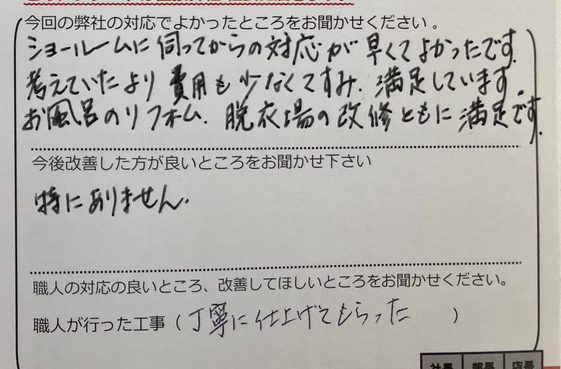 今回の弊社の対応でよかったところをお聞かせください。
ショールームに伺ってからの対応が早くてよかったです。
考えていたより費用も少なくてすみ、満足しています。
お風呂のリフォーム、脱衣場の改修ともに満足です。
今後改善した方が良いところをお聞かせ下さい
特にありません。
職人の対応の良いところ、改善してほしいところをお聞かせください。
職人が行った工事（丁寧に仕上げてもらった　）
社長 部長 店長